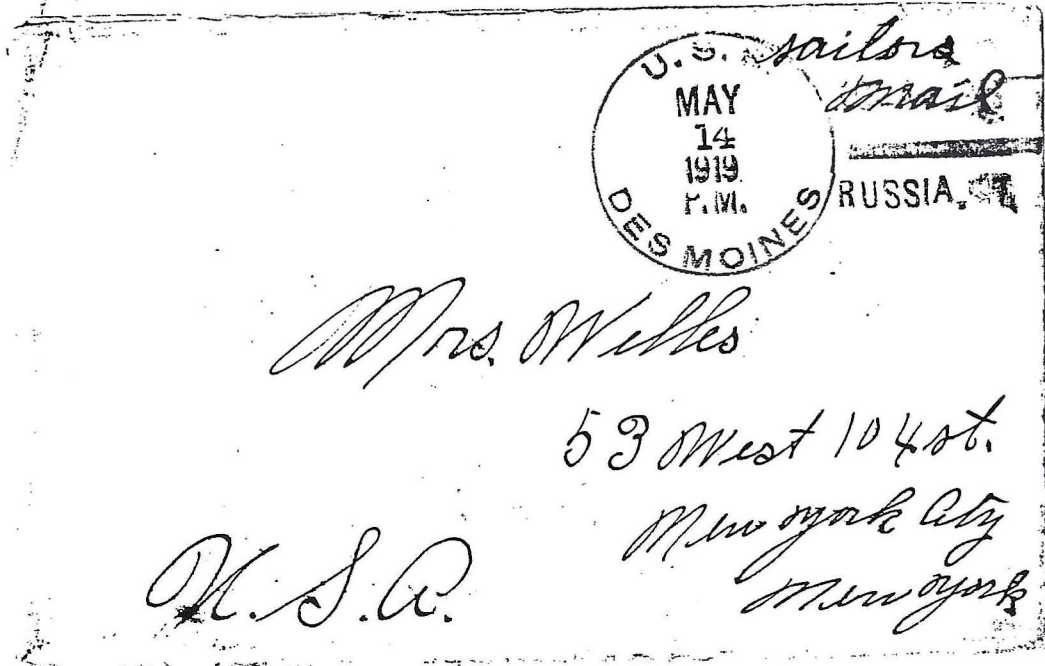 U.S.
sailors
mail
MAY
14
1919
P.M.
DES MOINES
RUSSIA.
Mrs. Welles
53 West 104 st.
New York City
New York
U.S.A.